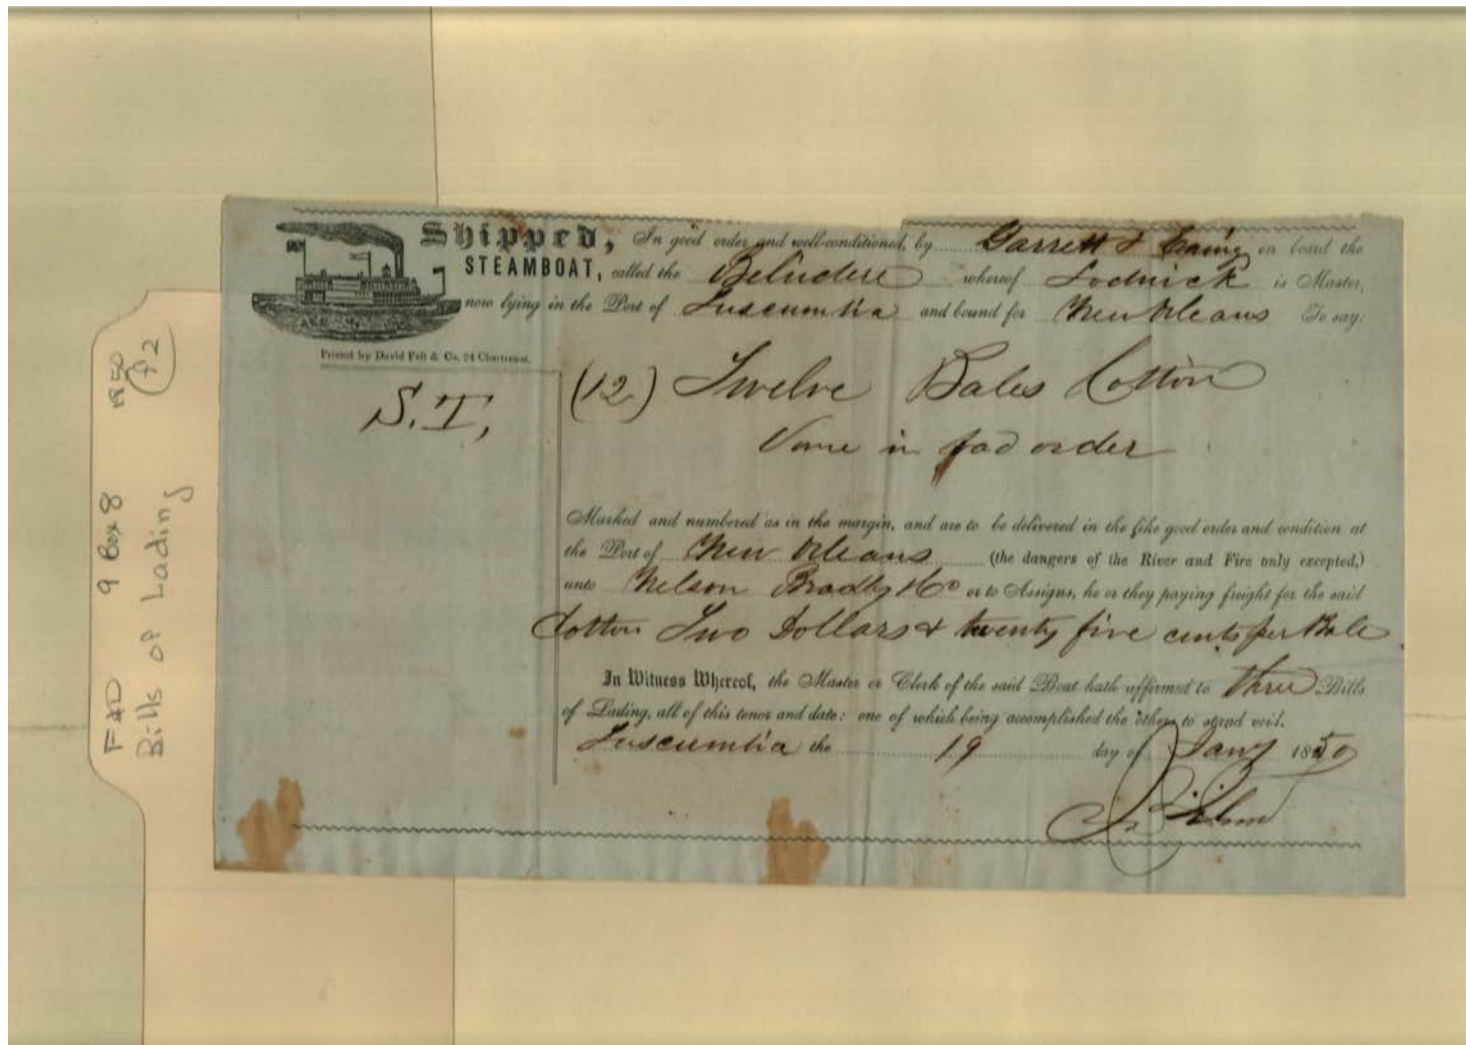 Shipped, In good order and well-conditioned, by Garrett & on board the
STEAMBOAT, called the Belvidere whereof Lodwick is Master,
now lying in the Port of Tuscumbia and bound for New Orleans To say:
Printed by David Felt & Co. 24 Chartres st.
S.T, (12) Twelve Bales Cotton
in bad order
Marked and numbered as in the margin, and are to be delivered in the like good order and condition at
the Port of New Orleans (the dangers of the River and Fire only excepted,)
unto Nelson Bradly & Co or to Assigns, he or they paying freight for the said
Cotton Two Dollars & twenty five cents per Bale
In Witness Whereof, the Master or Clerk of the said Boat hath affirmed to three Bills
of Lading, all of this tenor and date: one of which being accomplished the others to stand void.
Tuscumbia the 19 day of Jany 1850
F&D 9 Box 8 1850
f2
Bills of Lading